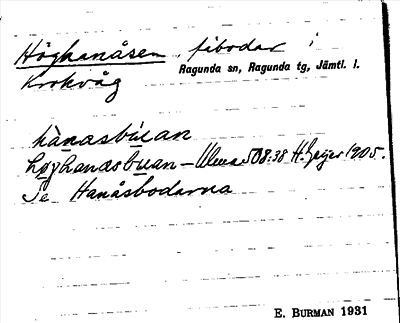 Höghanåsen, fäbodar i
Krokvåg
Ragunda sn, Ragunda tg, Jämtl. l.
hànasbùan
høghanasbuan – Ulma 508:38 H. Geijer 1905.
Se Hanåsbodarna
E. BURMAN 1931